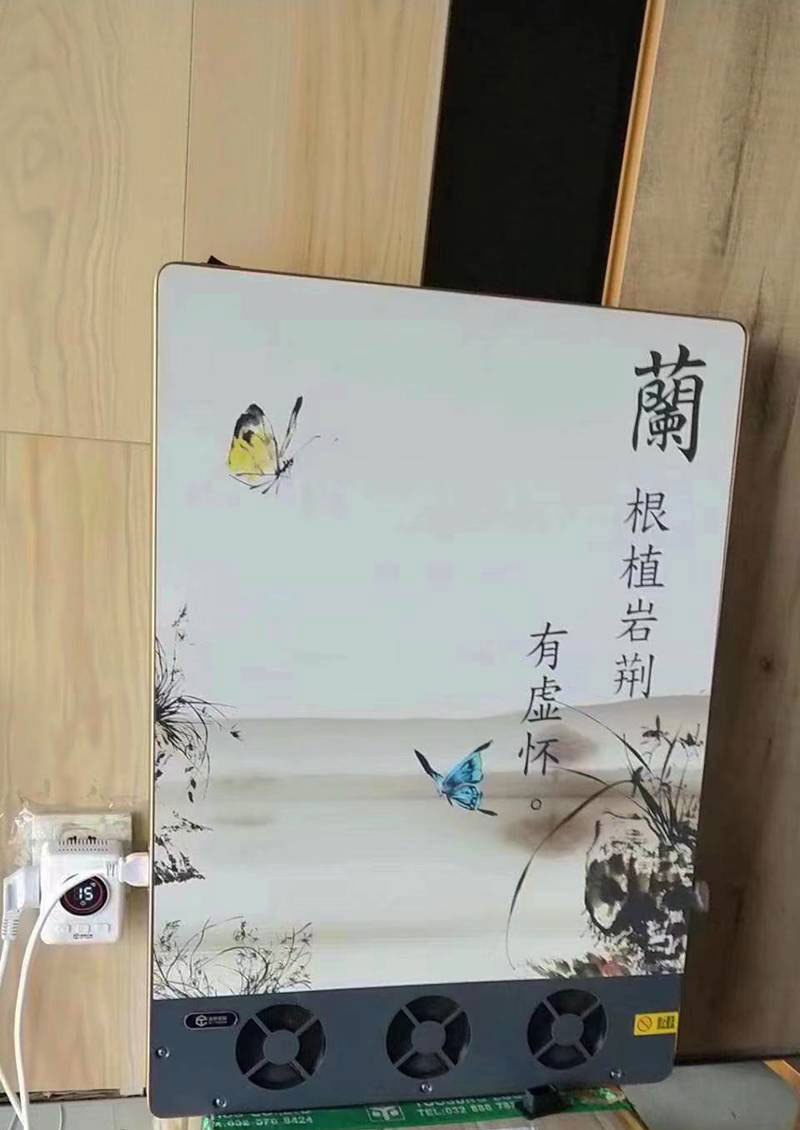 蘭
根植岩荆
有虚怀。
15
TEL:032 888 787
032 576 8424